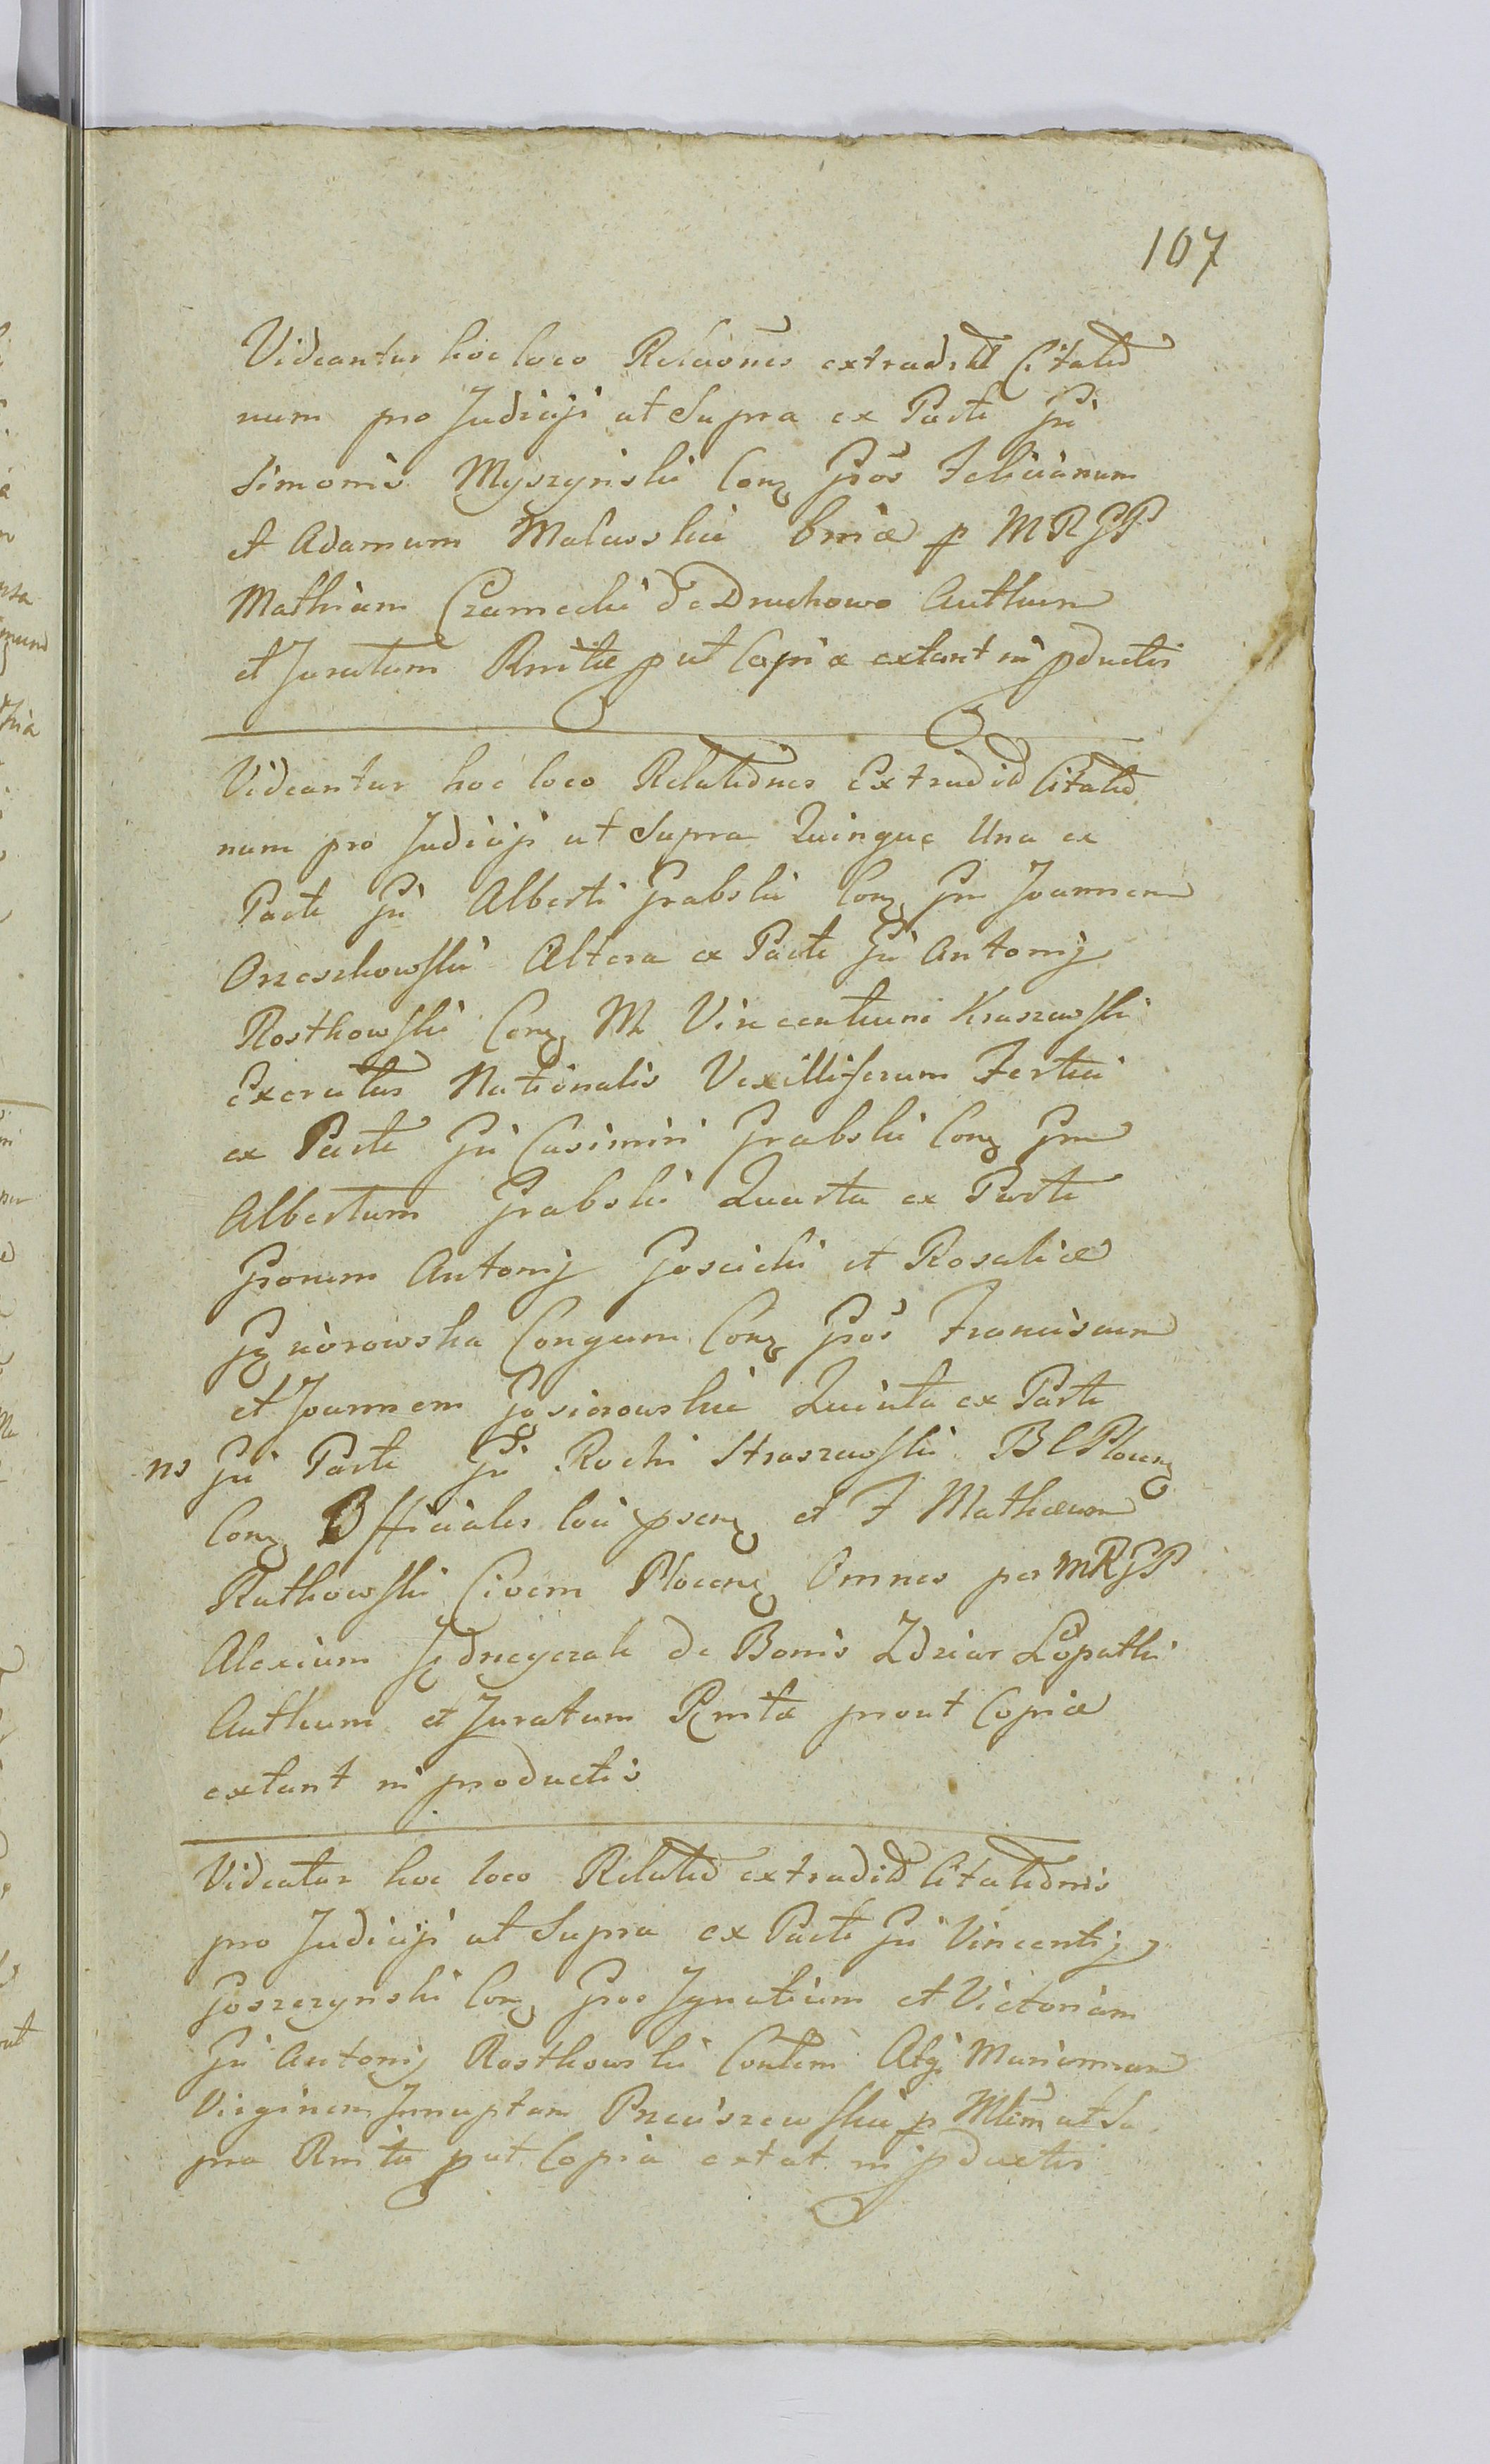 107
Videantur hoc loco Relaones extradit Citatio
num pro Judicijs ut Supra ex Parte Gsi
Simonis Myszynski Conq Gsos Felicianum
et Adamum Malewskie binæ p MRGP
Mathiam Czarnecki de Druchowo Authum
et Juratum Rnitæ put Copiæ extant in pductis
Videantur hoc loco Relationes Extradit Citatio
num pro Judicijs ut Supra Quinque Una ex
Parte Gsi Alberti Grabski Conq Gsm Joannem
Orzeszkowski Altera ex Parte Gsi Antonij
Rostkowski Conq M Vincentium Kraszewski
Exercitus Nationalis Vexilliferum Tertia
ex Parte Gsi Casimiri Grabski Conq Gsm
Albertum Grabski Quarta ex Parte
Gsorum Antonij Goscicki et Rosaliæ
Congum Conq Gsos Franciscum
et Joannem Gosiorowskie Quinta ex Parte
ns Gsi Parte Gsi Rochi Straszewski B C Plocenq
Conq Officiales loci psenq et F Mathæum
Rutkowski Civem Plocenq Omnes per MRGP
Alexium de Bonis Zdziar Łopatki
Authum et Juratum Rnitæ prout Copiæ
extant in productis
Videatur hoc loco Relatio extradit Citationis
pro Judicijs ut Supra ex Parte Gsi Vincentij
Goszczynski Conq Gsos Ignatium et Victoriam
Gsi Antonij Rostkowski Contem Mariannam
Virginem Innuptam p Mlem ut Su
pra Rnita put Copia extat in pductis